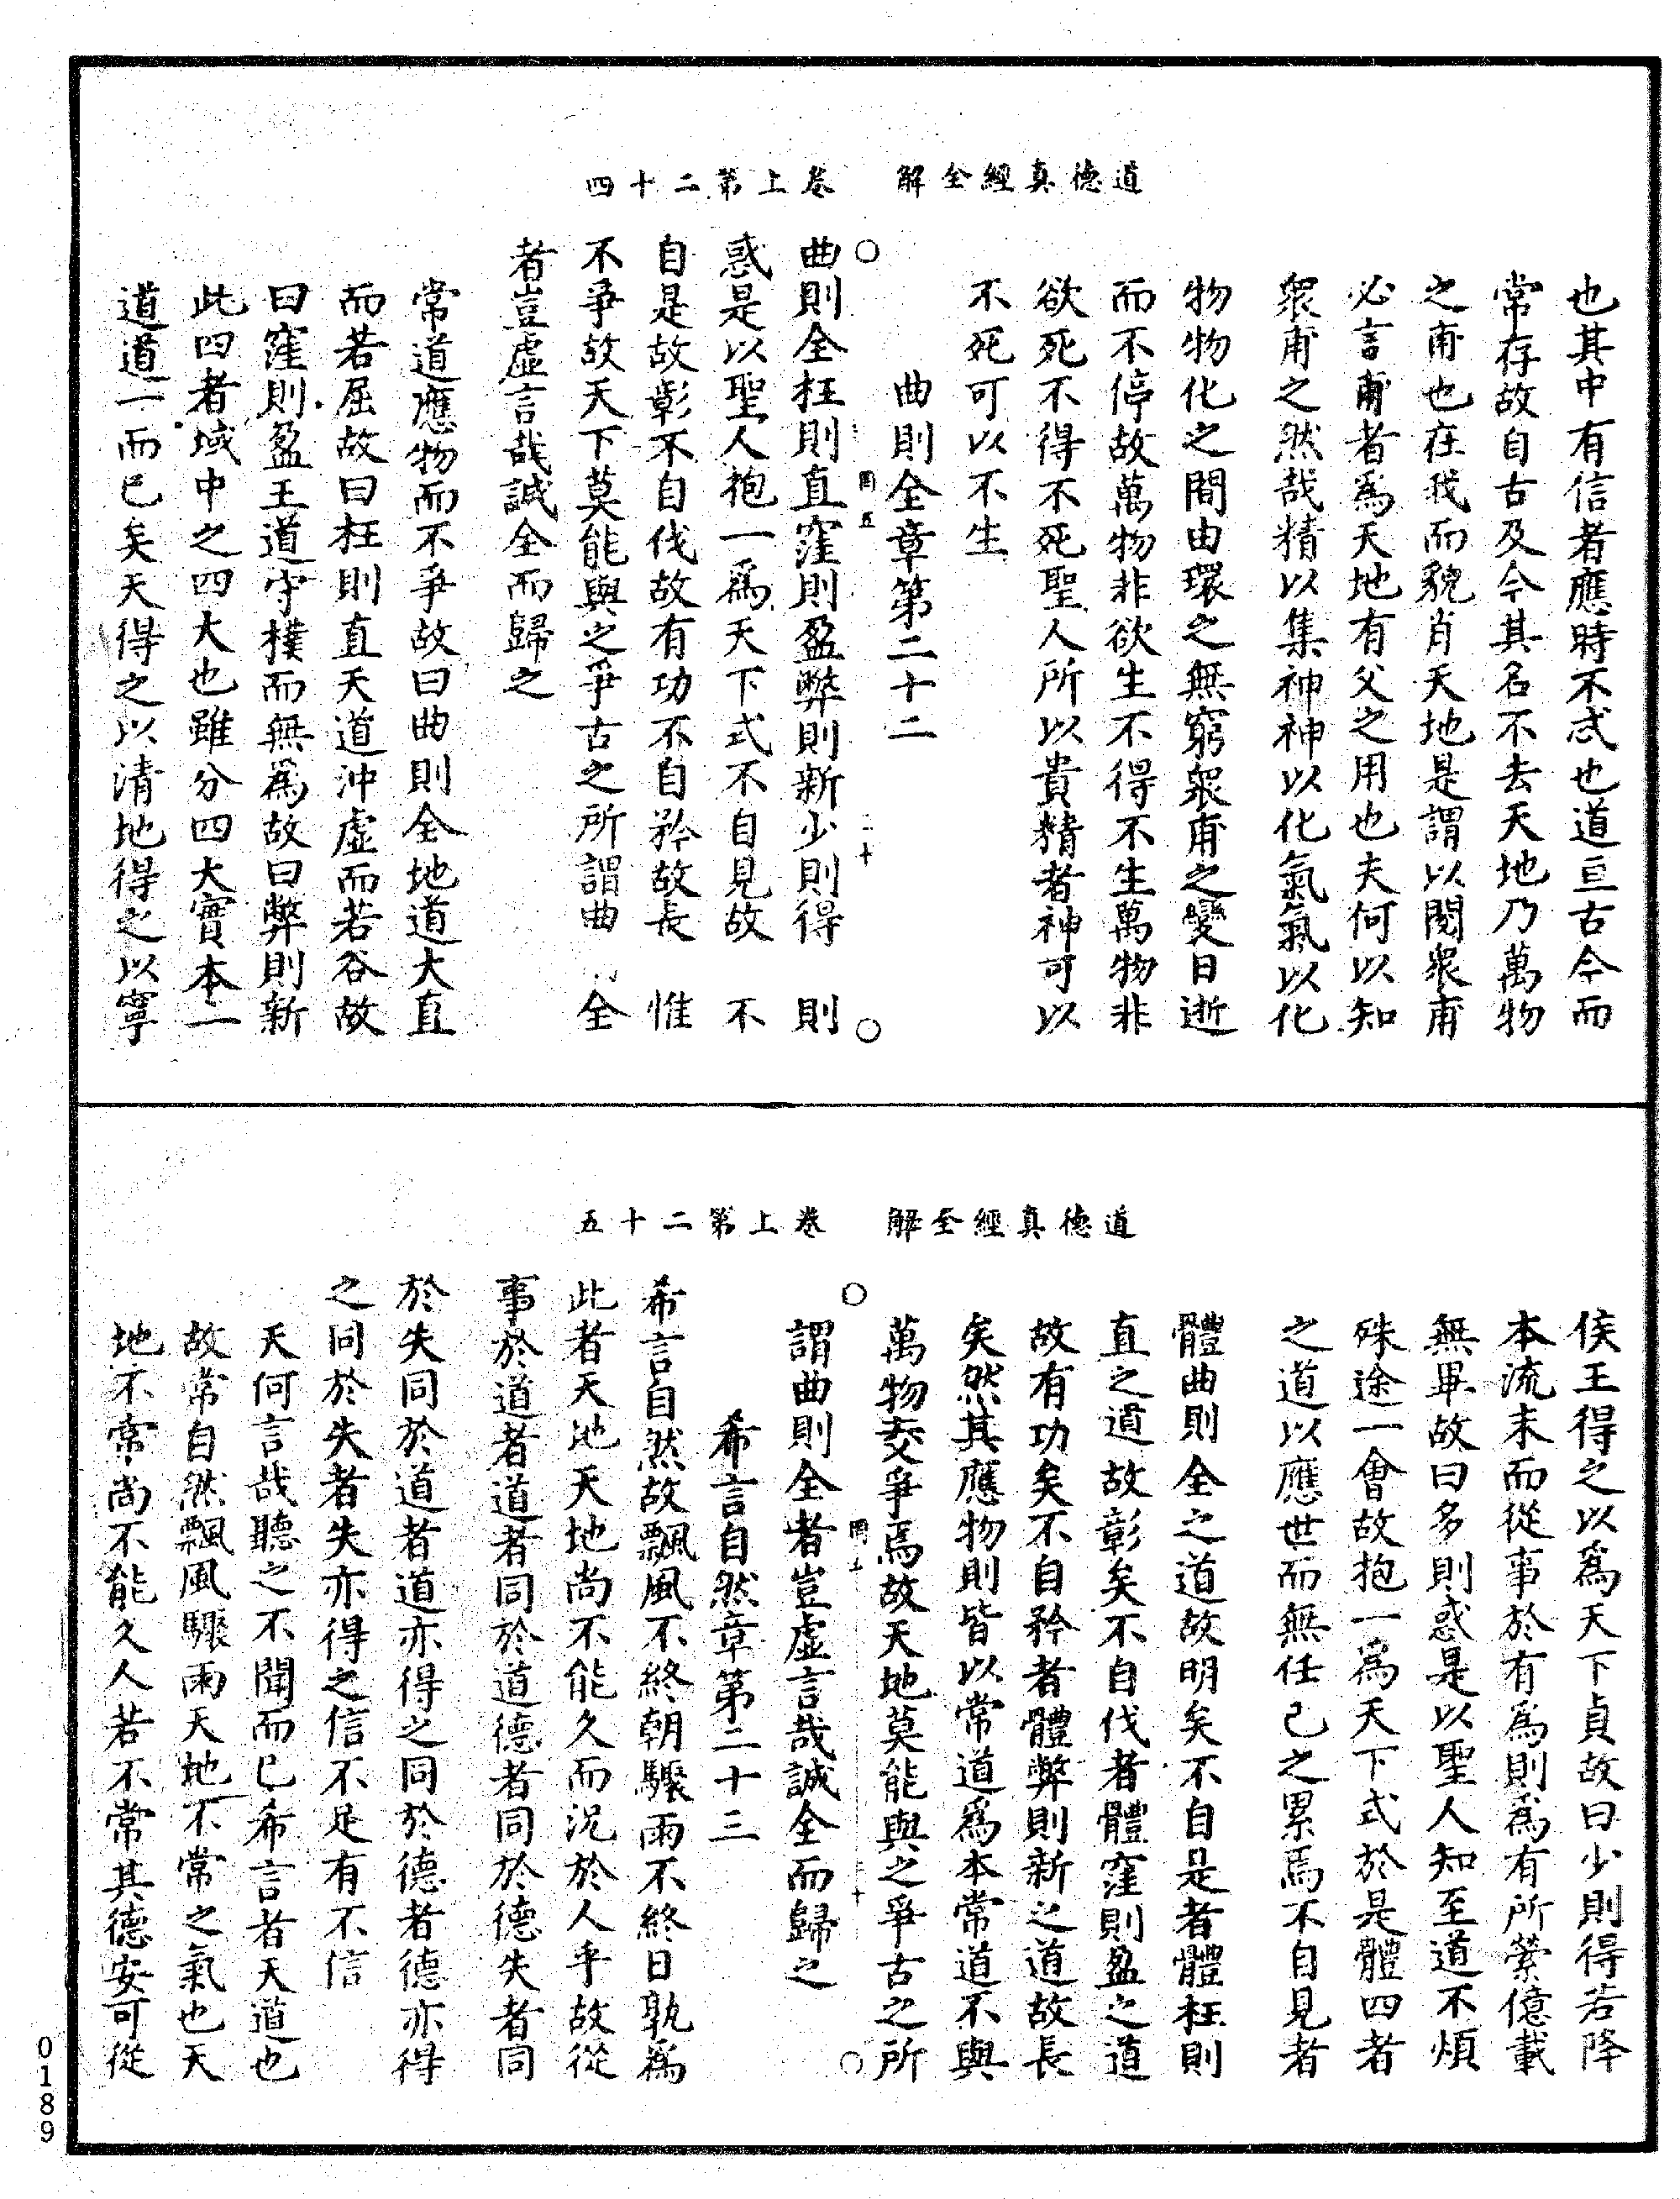 道德真經全解　卷上第二十四
也其中有信者應時不忒也道亘古今而
常存故自古及今其名不去天地乃萬物
之甫也在我而貌肖天地是謂以閱衆甫
必言甫者爲天地有父之用也夫何以知
衆甫之然哉精以集神神以化氣氣以化
物物化之間由環之無窮衆甫之變日逝
而不停故萬物非欲生不得不生萬物非
欲死不得不死聖人所以貴精者神可以
不死可以不生
曲則全章第二十二
曲則全枉則直窪則盈弊則新少則得　則
惑是以聖人抱一爲天下式不自見故　不
自是故彰不自伐故有功不自矜故長　惟
不爭故天下莫能與之爭古之所謂曲　全
者豈虛言哉誠全而歸之
常道應物而不爭故曰曲則全地道大直
而若屈故曰枉則直天道沖虛而若谷故
曰窪則盈王道守樸而無爲故曰弊則新
此四者域中之四大也雖分四大實本一
道道一而已矣天得之以清地得之以寧
道德真經全解　卷上第二十五
侯王得之以爲天下貞故曰少則得若降
本流末而從事於有爲則爲有所縈億載
無畢故曰多則惑是以聖人知至道不煩
殊途一會故抱一爲天下式於是體四者
之道以應世而無任己之累焉不自見者
體曲則全之道故明矣不自是者體枉則
直之道故彰矣不自伐者體窪則盈之道
故有功矣不自矜者體弊則新之道故長
矣然其應物則皆以常道爲本常道不與
萬物交爭焉故天地莫能與之爭古之所
謂曲則全者豈虛言哉誠全而歸之
希言自然章第二十三
希言自然故飄風不終朝驟雨不終日孰爲
此者天地天地尚不能久而況於人乎故從
事於道者道者同於道德者同於德失者同
於失同於道者道亦得之同於德者德亦得
之同於失者失亦得之信不足有不信
天何言哉聽之不聞而已希言者天道也
故常自然飄風驟雨天地不常之氣也天
地不常尚不能久人若不常其德安可從
0189